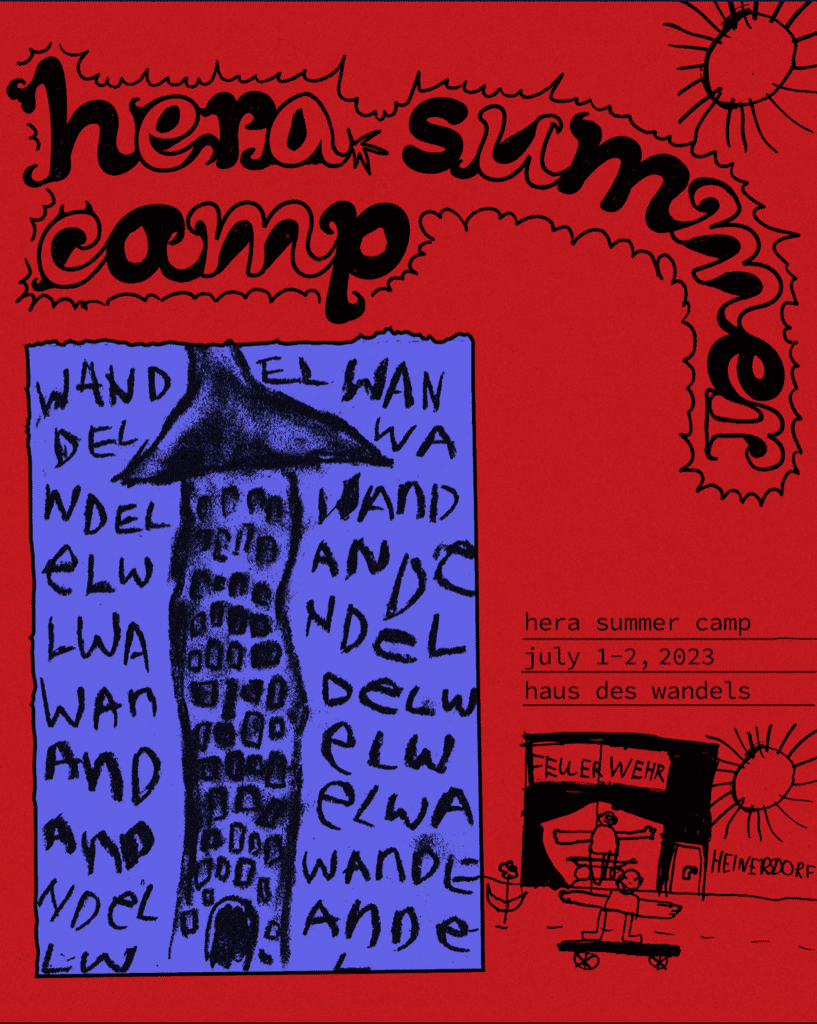 hera summer
camp
WAND EL WAN
DEL WA
NDEL WAND
eLW ANDe
LWA NDeL
WAn DeLW
AnD eLW
AnD eLWA
NDeL WANDE
LW AnDe
L
hera summer camp
july 1-2, 2023
haus des wandels
FEUERWEHR
HEINERSDORF